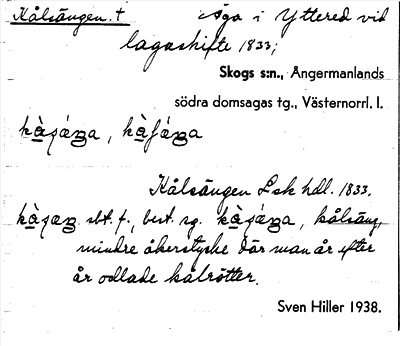 Kålsängen. t äga i Yttered vid
lagaskifte 1833;
Skogs s:n., Ångermanlands
södra domsagas tg., Västernorrl. l.
Kålsängen Lsk hdl. 1833.
sbt. f., best. sg. kålsäng,
mindre åkerstycke där man år efter
år odlade kålrötter.
Sven Hiller 1938.